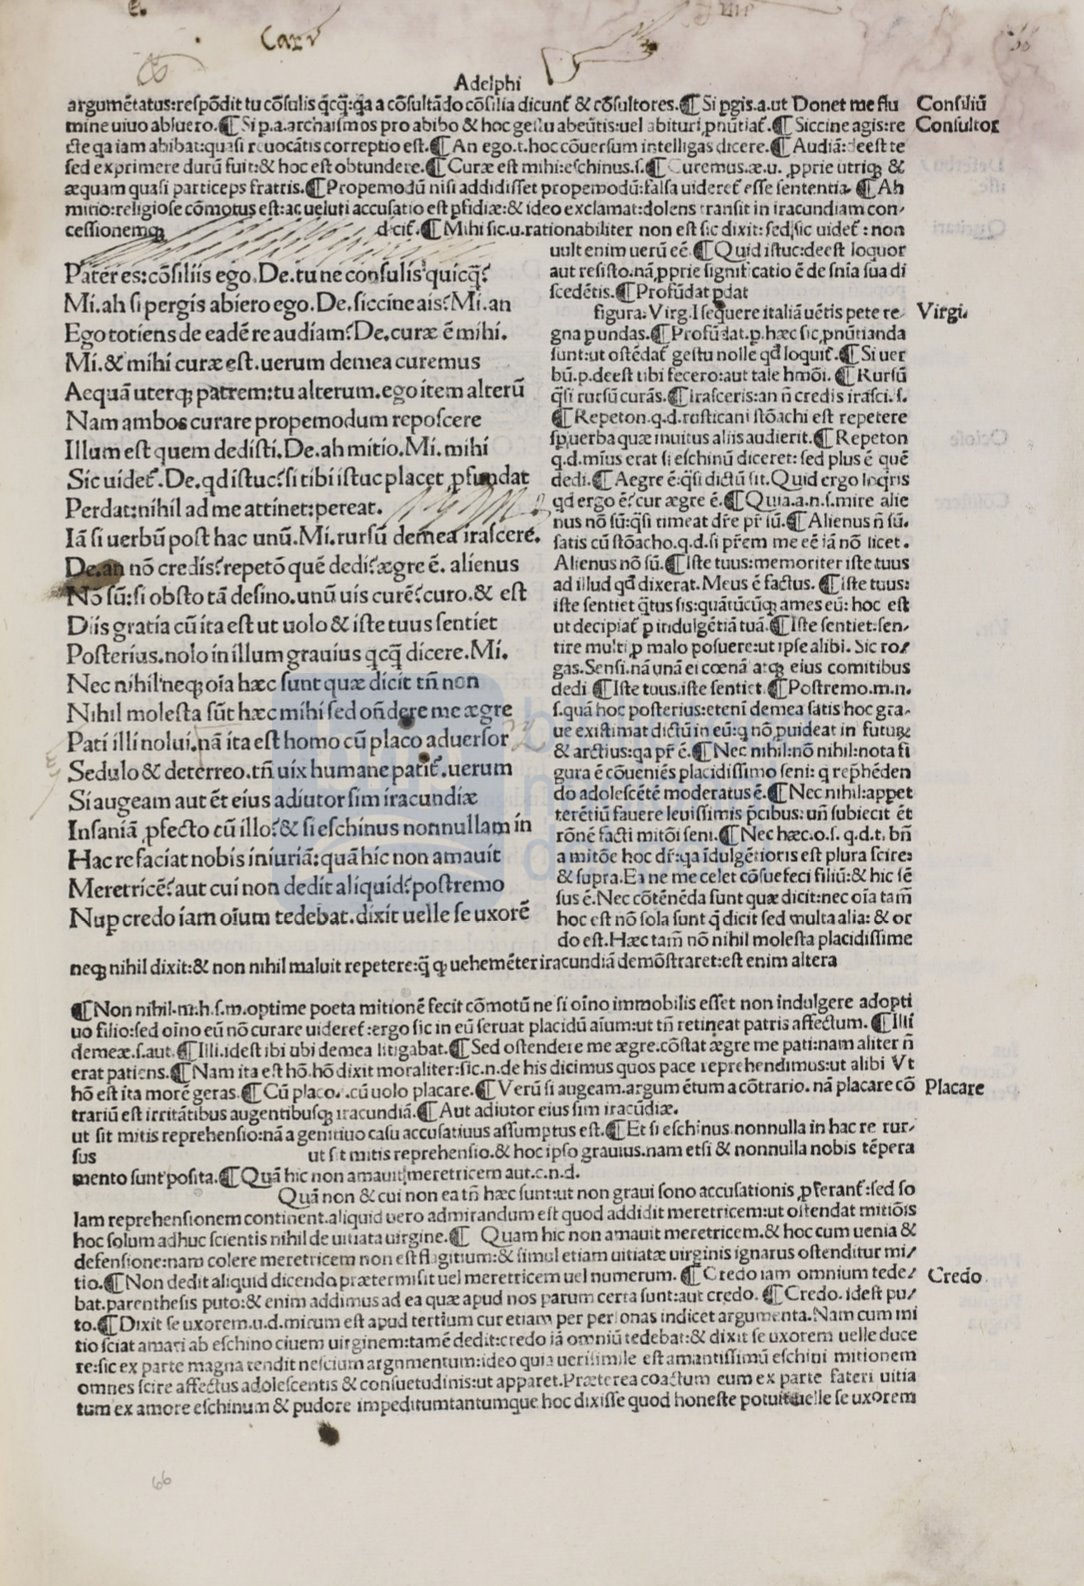 Adelphi
argumētatus:respōdit tu cōsulis q̄cq̄:qa a cōsultādo cōsilia dicunt & cōsultores.¶ Si pgis.a.ut Donet me flu
mine uiuo abluero.¶ Si p.a.archaismos pro abibo & hoc gestu abeūtis:uel abituri pnūtiat.¶ Siccine agis:re
cte qa iam abibat:quasi reuocātis correptio est.¶ An ego.t.hoc cōuersum intelligas dicere.¶ Audiā:deest te
sed exprimere durū fuit:& hoc est obtundere.¶ Curæ est mihi:eschinus.s.¶ Curemus.æ.u. pprie utriq; &
æquam quasi particeps fratris.¶ Propemodū nisi addidisset propemodū:falsa uideret esse sententia. ¶ Ah
mitio:religiose cōmotus est:ac ueluti accusatio est pfidiæ:& ideo exclamat:dolens transit in iracundiam con-
cessionemq; dicit.¶ Mihi sic.u.rationabiliter non est sic dixit:sed sic uidet : non
Consiliū
Consultor
Pater es:cōsiliis ego.De.tu ne consulis quicq̄?
Mi.ah si pergis abiero ego.De.siccine ais?Mi.an
Ego totiens de eadē re audiam?De.curæ ē mihi.
Mi.& mihi curæ est.uerum demea curemus
Aequā uterq; patrem:tu alterum.ego item alterū
Nam ambos curare propemodum reposcere
Illum est quem dedisti.De.ah mitio.Mi.mihi
Sic uidet.De.qd istuc?si tibi istuc placet pfundat
Perdat:nihil ad me attinet:pereat.
Iā si uerbū post hac unū.Mi.rursū demea irascere.
De.an nō credis?repetō quē dedi?ægre ē. alienus
Nō sū:si obsto tā desino.unū uis curē?curo.& est
Diis gratia cū ita est ut uolo & iste tuus sentiet
Posterius.nolo in illum grauius qcq̄ dicere.Mi.
Nec nihil neq; oīa hæc sunt quæ dicit tn̄ non
Nihil molesta sūt hæc mihi sed on̄dere me ægre
Pati illi nolui.nā ita est homo cū placo aduersor
Sedulo & deterreo.tn̄ uix humane patit.uerum
Si augeam aut ēt eius adiutor sim iracundiæ
Insaniā pfecto cū illo?& si eschinus nonnullam in
Hac re faciat nobis iniuriā:quā hic non amauit
Meretricē?aut cui non dedit aliquid?postremo
Nup credo iam oīum tedebat.dixit uelle se uxorē
uult enim uerū eē.¶ Quid istuc:deest loquor
aut resisto.nā pprie significatio ē de snīa sua di
scedētis.¶ Profūdat pdat
figura.Virg.I sequere italiā uētis pete re-
gna p undas.¶ Profūdat.p.hæc sic pnūtianda
sunt:ut ostēdat gestu nolle qd loquit.¶ Si uer
bū.p.deest tibi fecero:aut tale hmōi. ¶ Rursū
q̄si rursū curās.¶ Irasceris:an n̄ credis irasci.s.
¶ Repeton.q.d.rusticani stōachi est repetere
sp uerba quæ inuitus aliis audierit.¶ Repeton
q.d.mīus erat si eschinū diceret: sed plus ē quē
dedi.¶ Aegre ē:q̄si dictū sit.Quid ergo loqris
qd ergo ē?cur ægre ē.¶ Quia.a.n.s.mire alie
nus nō sū:q̄si timeat dr̄e pr̄ sū.¶ Alienus n̄ sū.
satis cū stōacho.q.d.si pr̄em me eē iā nō licet.
Alienus nō sū.¶ Iste tuus:memoriter iste tuus
ad illud qd dixerat.Meus ē factus. ¶ iste tuus:
iste sentiet q̄tus sis:quātūcūq; ames eū: hoc est
ut decipiat p indulgētiā tuā.¶ Iste sentiet:sen-
tire multi p malo posuere:ut ipse alibi. Sic ro-
gas.Sensi.nā unā ei cœnā atq; eius comitibus
dedi ¶ Iste tuus.iste sentiet.¶ Postremo.m.n.
s.quā hoc posterius:etenī demea satis hoc gra-
ue existimat dictū in eū:q nō puideat in futurū
& arctius:qa pr̄ ē.¶ Nec nihil:nō nihil:nota fi
gura ē cōueniēs placidissimo seni: q rephēden
do adolescētē moderatus ē.¶ Nec nihil:appet
terētiū fauere leuissimis pcibus: un̄ subiecit ēt
rōnē facti mitōi seni.¶ Nec hæc.o.s. q.d.t. bn̄
a mitōe hoc dr̄:qa īdulgētioris est plura scire:
& supra.Ea ne me celet cōsuefeci filiū:& hic sē
sus ē.Nec cōtēnēda sunt quæ dicit:nec oīa tam̄
hoc est nō sola sunt q̄ dicit sed multa alia: & or
do est.Hæc tam̄ nō nihil molesta placidissime
Virgi.
neq; nihil dixit:& non nihil maluit repetere:q̄ q uehemēter iracundiā demōstraret:est enim altera
¶ Non nihil.m.h.s.m.optime poeta mitionē fecit cōmotū ne si oīno immobilis esset non indulgere adopti
uo filio:sed oīno eū nō curare uideret:ergo sic in eū seruat placidū aīum:ut tn̄ retineat patris affectum. ¶ Illi
demeæ.s.aut.¶ Illi.idest ibi ubi demea litigabat.¶ Sed ostendere me ægre.cōstat ægre me pati:nam aliter n̄
erat patiens.¶ Nam ita est hō.hō dixit moraliter:sic.n.de his dicimus quos pace reprehendimus:ut alibi Vt
hō est ita morē geras.¶ Cū placo..cū uolo placare.¶ Verū si augeam.argumētum a cōtrario. nā placare cō
trariū est irritātibus augentibusq; iracundiā.¶ Aut adiutor eius sim iracūdiæ.
ut sit mitis reprehensio:nā a genitiuo casu accusatiuus assumptus est.¶ Et si eschinus.nonnulla in hac re rur-
sus ut sit mitis reprehensio.& hoc ipso grauius.nam etsi & nonnulla nobis tēpera
mento sunt posita.¶ Quā hic non amauit meretricem aut.c.n.d.
Quā non & cui non ea tn̄ hæc sunt:ut non graui sono accusationis pferant:sed so
lam reprehensionem continent.aliquid uero admirandum est quod addidit meretricem:ut ostendat mitiōis
hoc solum adhuc scientis nihil de uitiata uirgine.¶ Quam hic non amauit meretricem.& hoc cum uenia &
defensione:nam colere meretricem non est flagitium:& simul etiam uitiatæ uirginis ignarus ostenditur mi-
tio.¶ Non dedit aliquid dicendo prætermisit uel meretricem uel numerum. ¶ Credo iam omnium tede-
bat.parenthesis puto:& enim addimus ad ea quæ apud nos parum certa sunt:aut credo. ¶ Credo. idest pu-
to.¶ Dixit se uxorem.u.d.mirum est apud tertium cur etiam per personas indicet argumenta.Nam cum mi
tio sciat amari ab eschino ciuem uirginem:tamē dedit:credo iā omniū tedebat:& dixit se uxorem uelle duce
re:sic ex parte magna tendit nescium argnmentum:ideo quia uerisimile est amantissimū eschini mitionem
omnes scire affectus adolescentis & consuetudinis:ut apparet.Præterea coactum eum ex parte fateri uitia
tum ex amore eschinum & pudore impeditumtantumque hoc dixisse quod honeste potuit uelle se uxorem
Placare
Credo
66